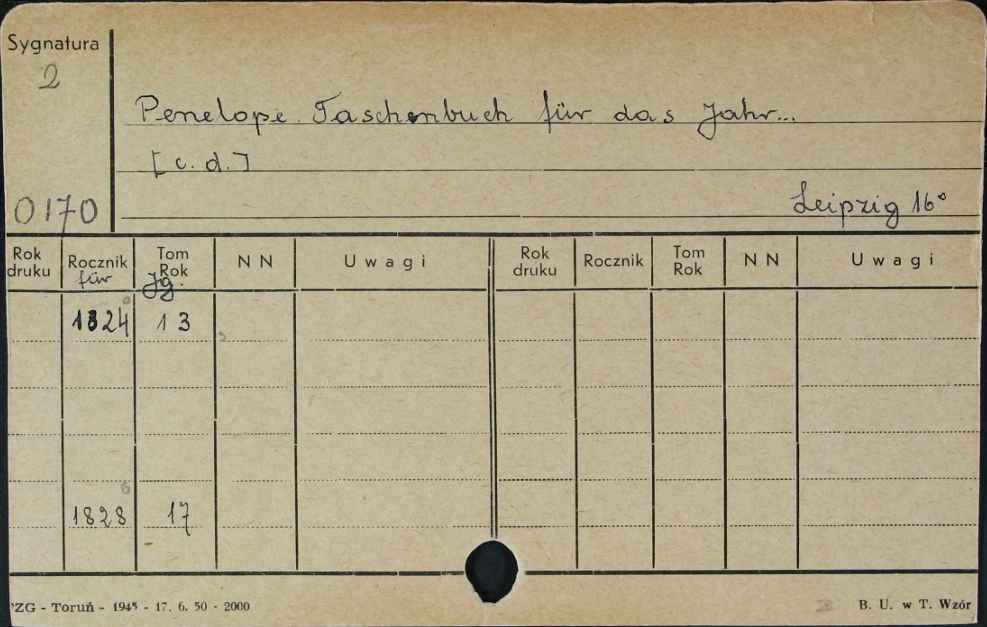 Sygnatura
2
Penelope. Taschenbuch für das Jahr...
[c. d.]
0170
Leipzig 16°
Rok druku Rocznik für Tom Rok Jg. NN Uwagi Rok druku Rocznik Tom Rok NN Uwagi
1824 13
1828 17
ZG - Toruń - 1945 - 17. 6. 50 - 2000
B. U. w T. Wzór